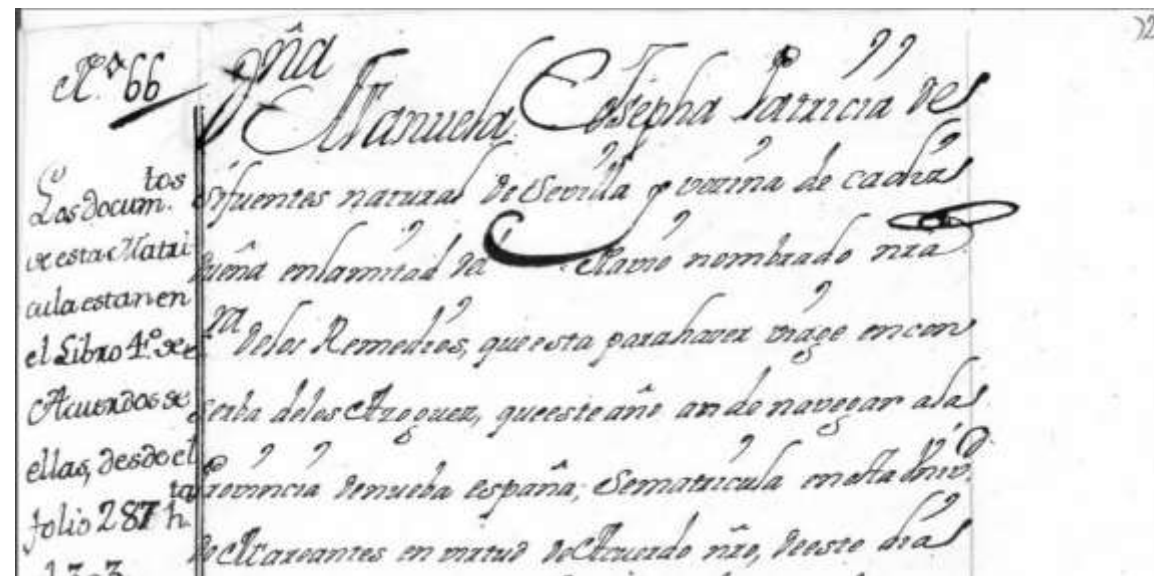 N.º 66
Los docum.tos
de esta Matri
cula estan en
el Libro 4.º de
Acuerdos de
ellas, desdo el
folio 287 h.ta
1303
Dña
Manuela Josepha Patricia de
Sifuentes natural de Sevilla y vezina de cadiz
dueña enlamitad del Navio nombrado nra
Sra delos Remedios, que esta parahaver viage en con
serba delos Azoguez, queesteaño an de navegar alas
Provincia denueba españa; Sematricula enesta Univ.d
de Mareantes en virtud de Acuerdo nro, deeste dia